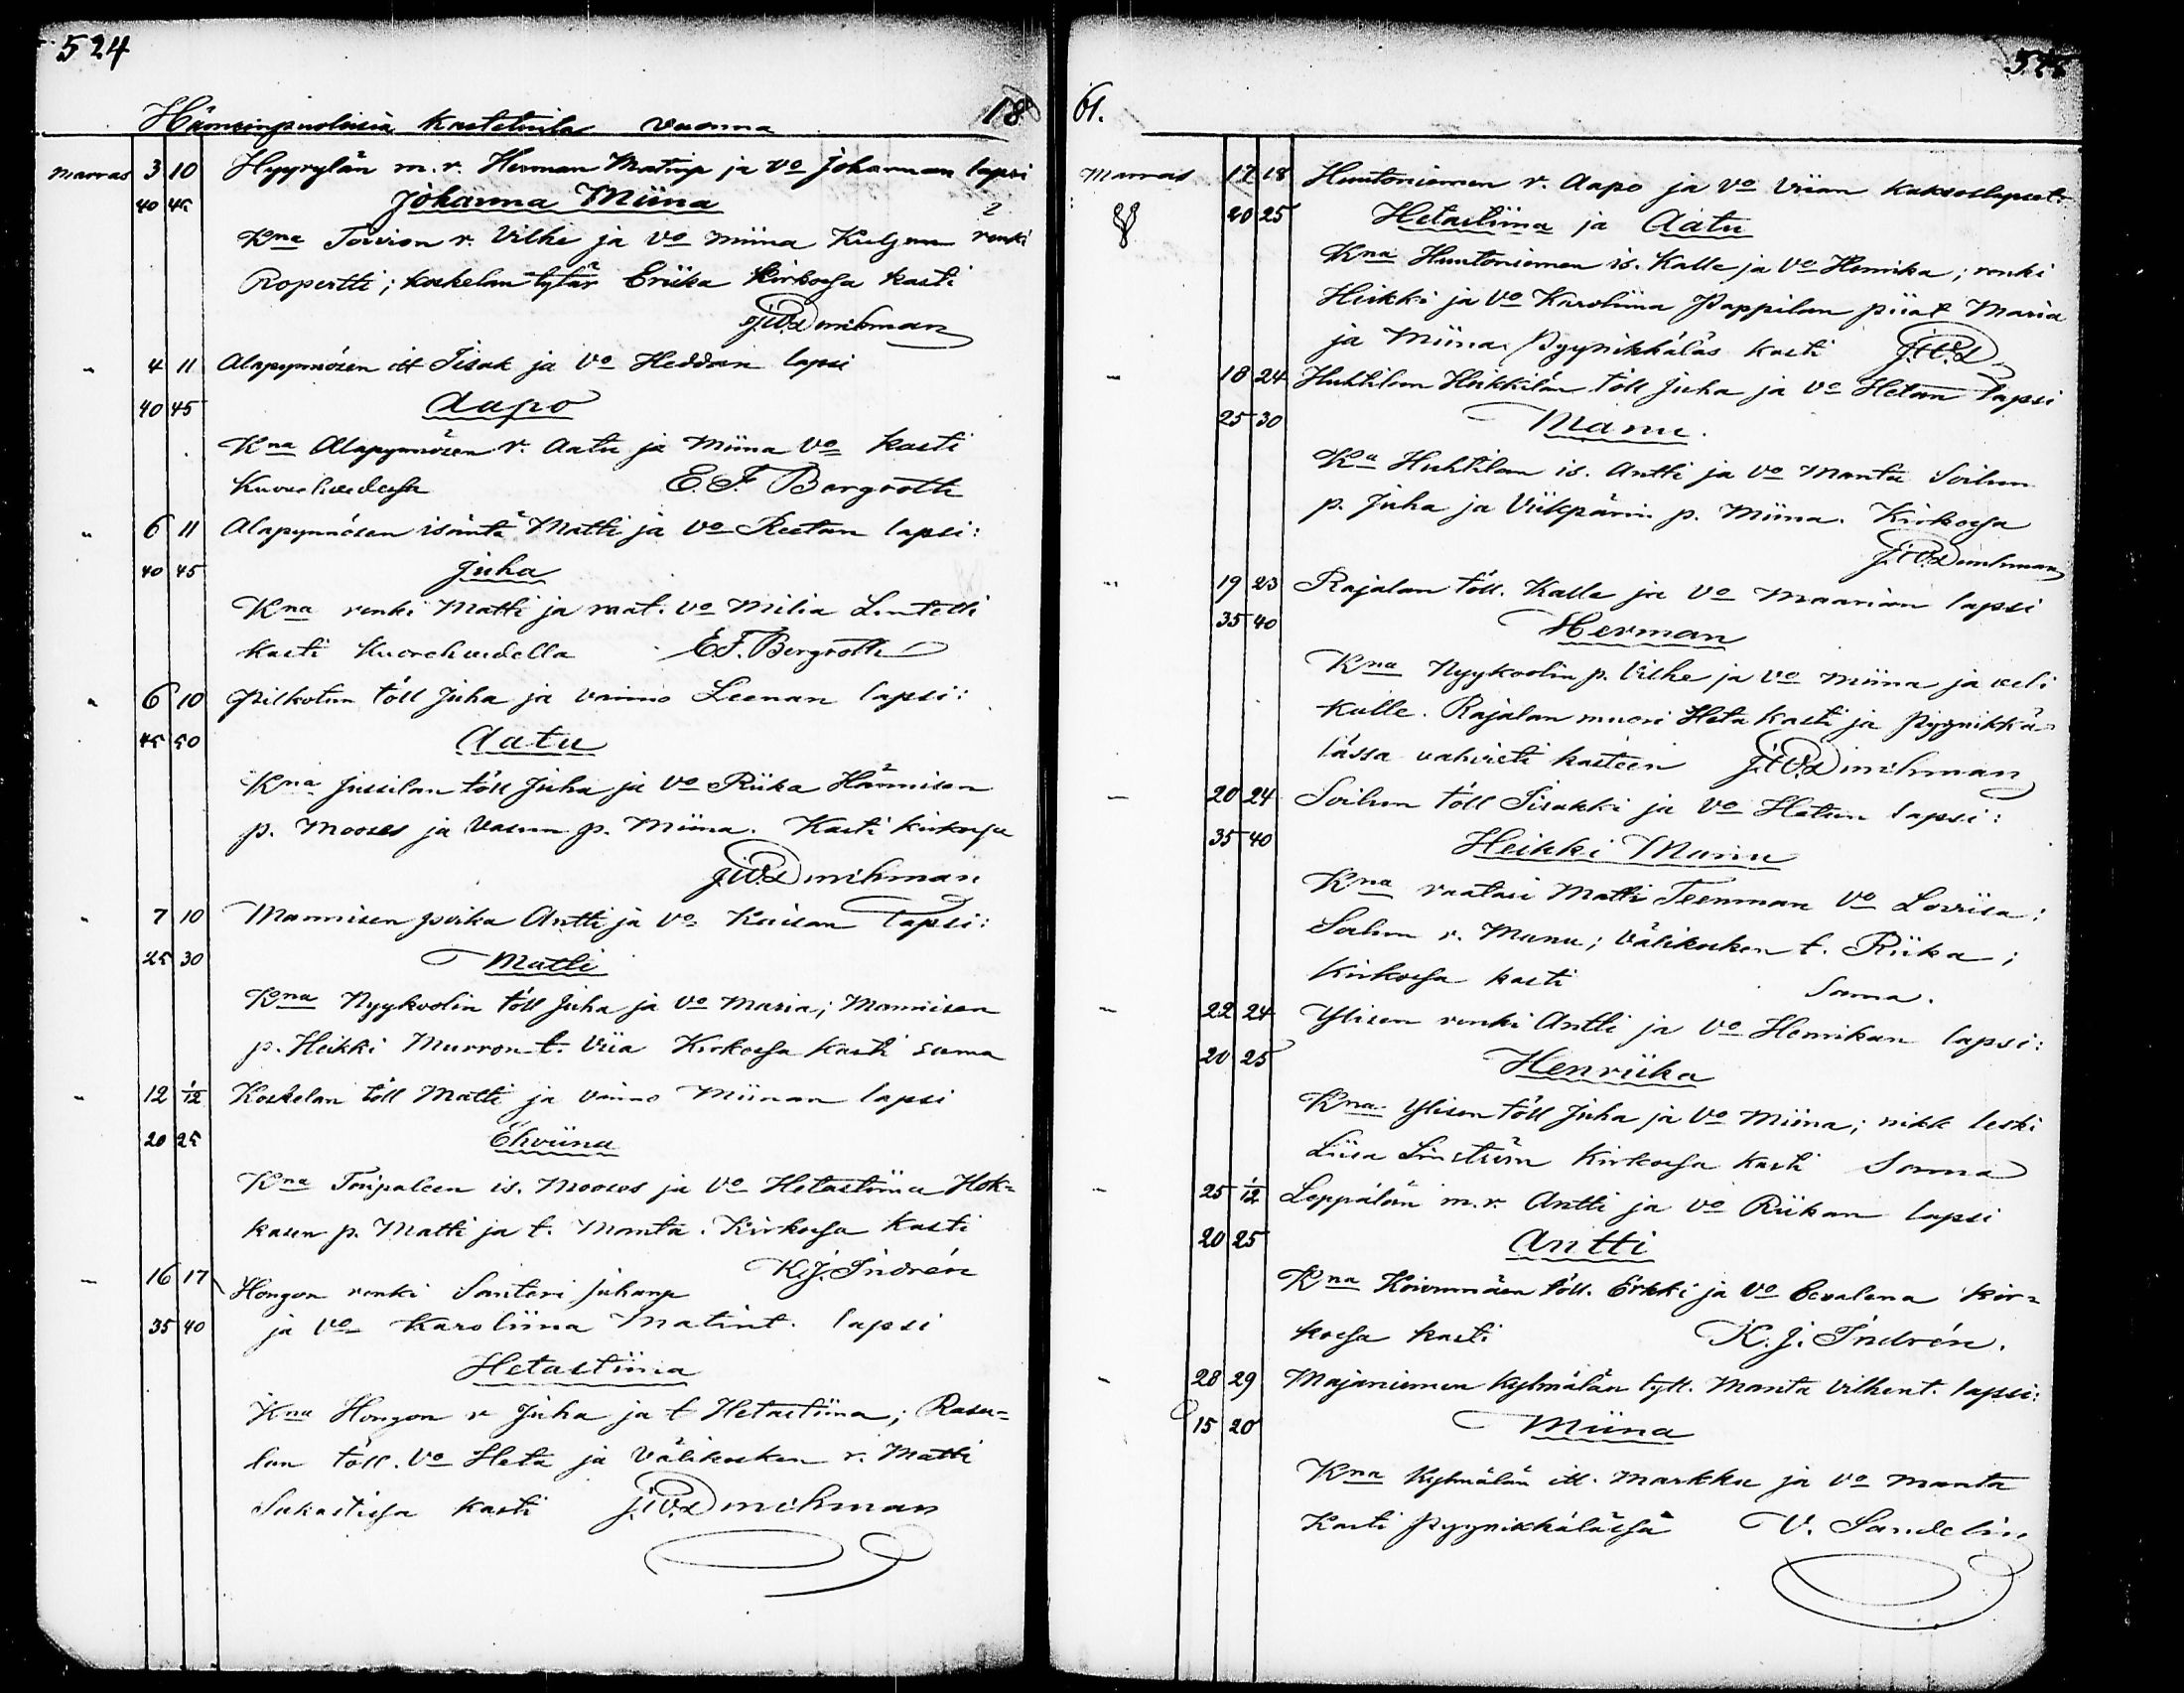 524
Hämeenpuoleisia kastetuita vuonna 18
marras 3 10 Hyyrylän m. r. Herman Matinp ja vo Johannan lapsi
40 45 Johanna Miina
Kna Toivion r. Vilhe ja vo Miina renki
Ropertti; koskelan tytär Eriika kirkossa kasti
J.W. Durchman
" 4 11 Alapynnösen itt Iisak ja vo Heddan lapsi
40 45 Aapo
Kna Alapynnösen r. Aatu ja Miina vo kasti
Kuorehvedessä E. F. Bergroth
" 6 11 Alapynnösen isäntä Matti ja vo Reetan lapsi:
40 45 Juha
Kna renki Matti ja vo Milia
kasti Kuorehvedella E.F. Bergroth
" 6 10 Pilkotun töll Juha ja vaimo Leenan lapsi:
45 50 Aatu
Kna Jussilan töll Juha ja vo Riika Hännisen
p. Mooses ja p. Miina. Kasti kirkossa
J.W. Durchman
" 7 10 Mannisen poika Antti ja vo Kaisan lapsi:
25 30 Matti
Kna Nyykoolin töll Juha ja vo Maria; Mannisen
p. Heikki Murron t. Viia Kirkossa kasti sama
" 12 1/12 Koskelan töll Matti ja vaimo Miinan lapsi
20 25 Ehviina
Kna Toripaleen is. Mooses ja vo Hetastiina Hok=
kasen p. Matti ja t. Manta. Kirkossa kasti
K.J. Indrén
" 16 17 Hongon renki Santeri Juhanp
35 40 ja vo Karoliina Matint. lapsi
Hetastiina
Kna Hongon r Juha ja t Hetastiina; Rasa=
lan töll. vo Heta ja Välikosken r. Matti
Sakastissa kasti J.W. Durchman
525
61.
Marras 17 18 Huutoniemen r. Aapo ja vo Viian kaksoslapset:
20 25 Hetastiina ja Aatu
Kna Huutoniemen is. Kalle ja vo Henrika; renki
Heikki ja vo Karoliina Pappilan piiat Maria
ja Miina. Pyynikkäläs kasti J.W.D
" 18 24 Huhtilan Heikkilän töll Juha ja vo Hetan lapsi
25 30 Manu.
Ka Huhtilan is. Antti ja vo Manta Soilun
p. Juha ja Viikpärin p. Miina. Kirkossa
J.W. Durchman
" 19 23 Rajalan töll. Kalle ja vo Maarian lapsi
35 40 Herman
Kna Nyykoolin p. Vilhe ja vo Miina ja veli
Kalle. Rajalan muori Heta kasti ja Pyynikkä=
lässä vahvisti kasteen J.W. Durchman
" 20 24 Soilun töll Iisakki ja vo Hetan lapsi:
35 40 Heikki Manu
Kna raatari Matti Teenman vo Loviisa:
Soilun r. Manu; Välikosken t. Riika;
Kirkossa kasti Sama.
" 22 24 Ylisen renki Antti ja vo Henrikan lapsi:
20 25 Henriika
Kna Ylisen töll Juha ja vo Miina; nikk leski
Liisa Sinström Kirkossa kasti Sama
" 25 1/12 Leppälän m. r. Antti ja vo Riikan lapsi
20 25 Antti
Kna Koivumäen töll. Erkki ja vo Eevalena kir=
kossa kasti K. J. Indrén.
" 28 29 Majaniemen Kylmälän tytt. Manta Vilhent. lapsi:
15 20 Miina
Kna Kylmälän itt. Markku ja vo Manta
Kasti Pyynikkälässä V. Sandelin